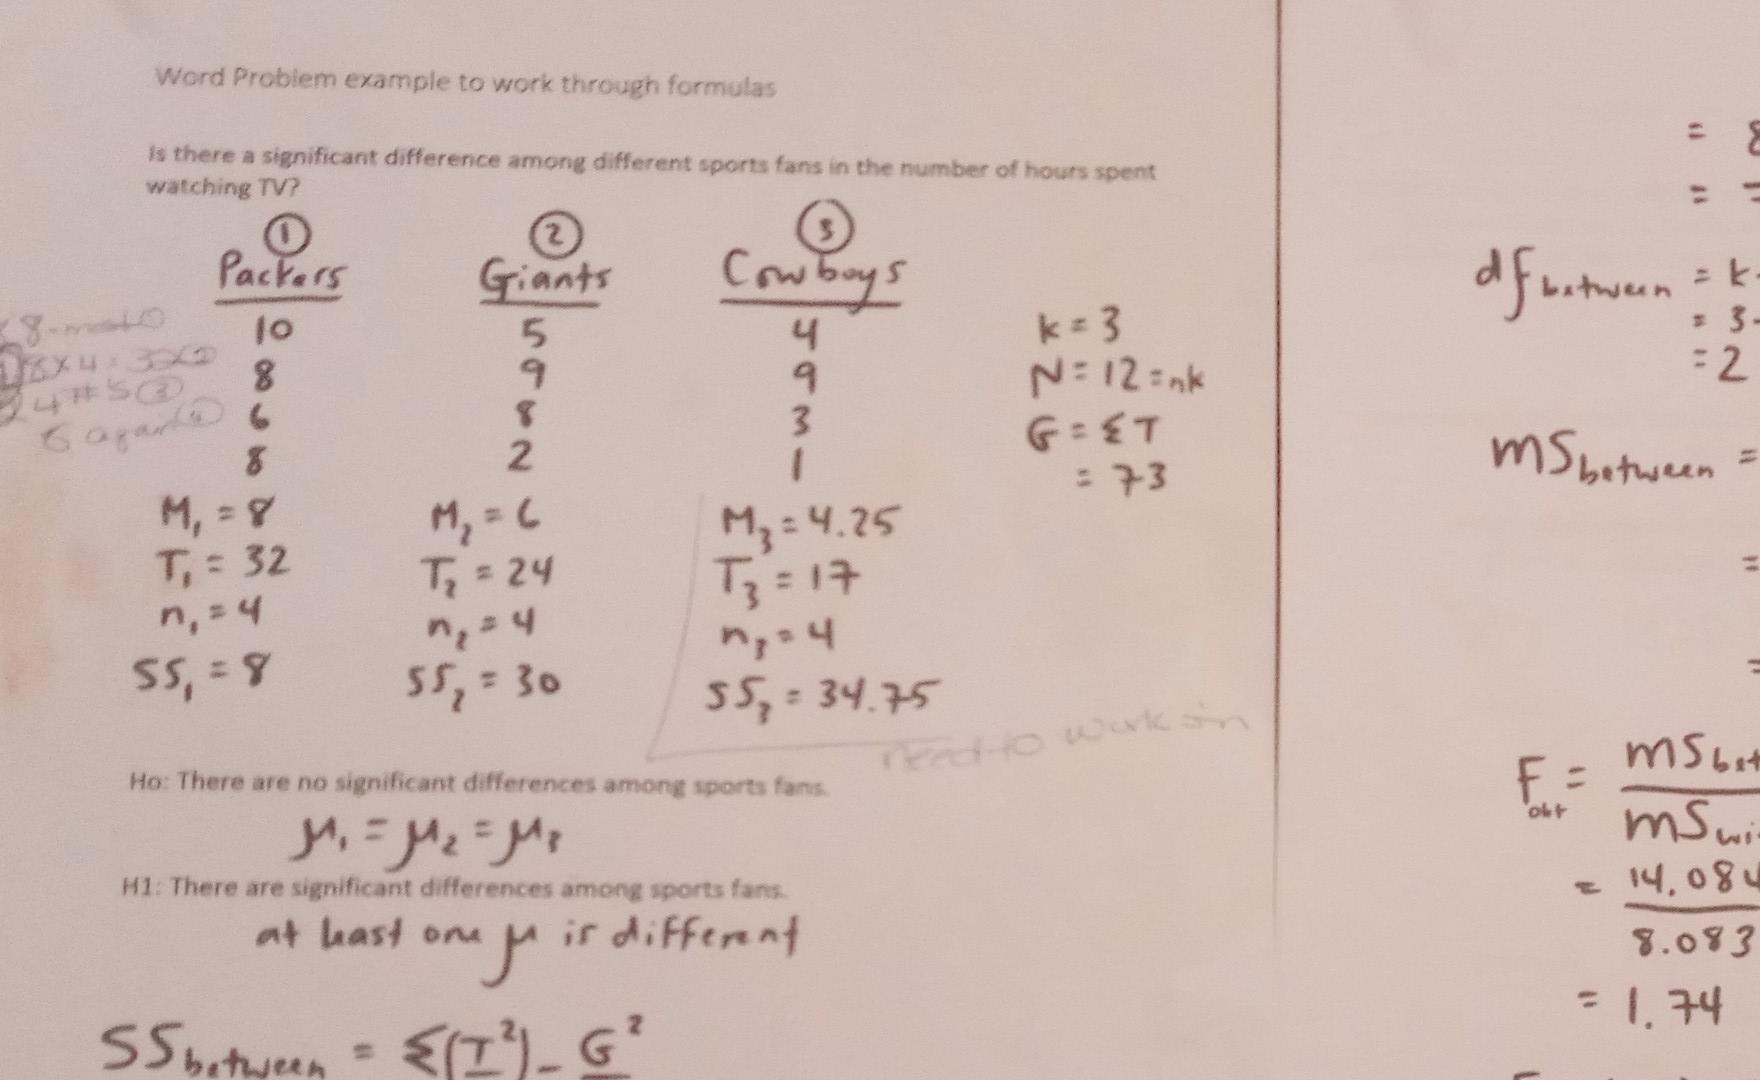 Word Problem example to work through formulas
Is there a significant difference among different sports fans in the number of hours spent
watching TV?
① ② ③
Packers Giants Cowboys
10 5 4
8 9 9
6 8 3
8 2 1
M₁ = 8 M₂ = 6 M₃ = 4.25
T₁ = 32 T₂ = 24 T₃ = 17
n₁ = 4 n₂ = 4 n₃ = 4
SS₁ = 8 SS₂ = 30 SS₃ = 34.75
k = 3
N = 12 = nk
G = ΣT
= 73
need to work on
Ho: There are no significant differences among sports fans.
μ₁ = μ₂ = μ₃
H1: There are significant differences among sports fans.
at least one μ is different
SS between = Σ(T²) - G²
= 8
=
df between = k-
= 3-
= 2
MS between =
=
=
F obt = MS bet
MS wi
= 14.084
8.083
= 1.74